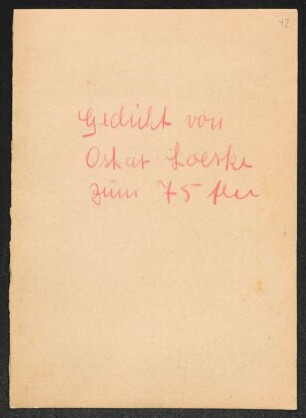 42
Gedicht von
Oskar Loerke
zum 75 ten